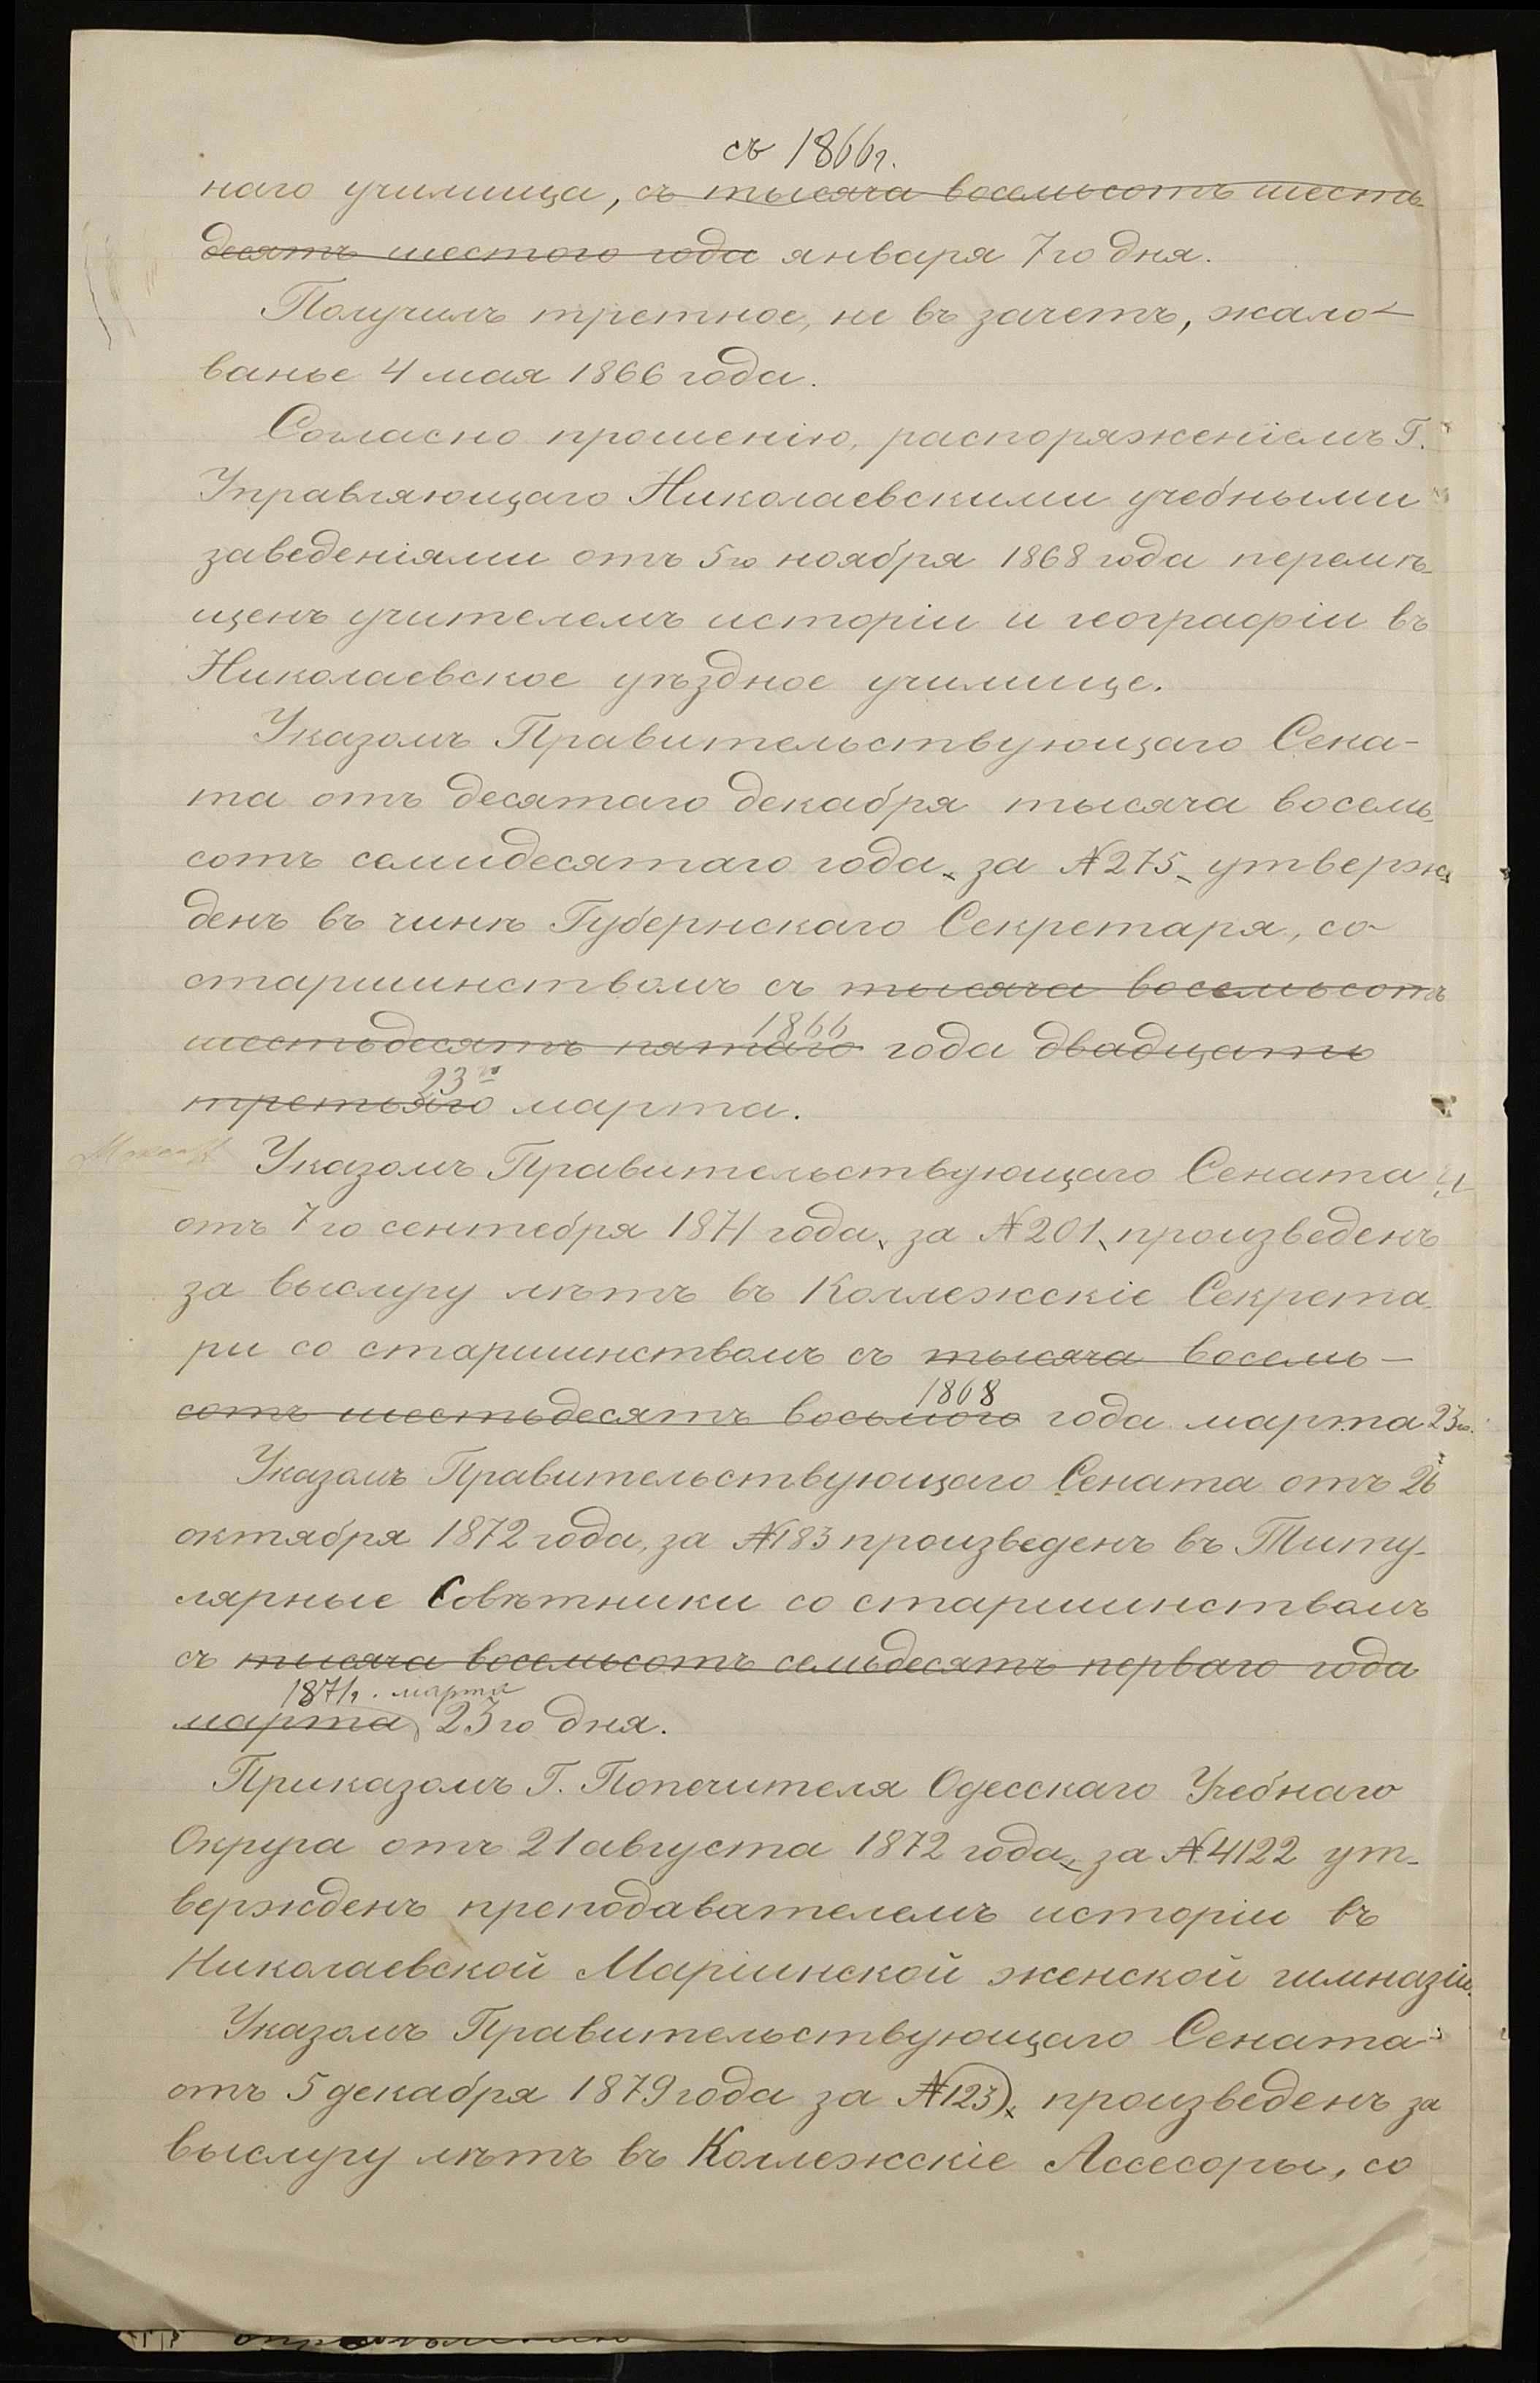 съ 1866г.
наго училища, съ тысяча восемьсотъ шесть-
десятъ шестого года января 7го дня.
Получилъ третное, не въ зачетъ, жало-
ванье 4 мая 1866 года.
Согласно прошенію, распоряженіемъ Г.
Управляющаго Николаевскими учебными
заведеніями отъ 5го ноября 1868 года перемѣ-
щенъ учителемъ исторіи и географіи въ
Николаевское уѣздное училище.
Указомъ Правительствующаго Сена-
та отъ десятаго декабря тысяча восемь-
сотъ семидесятаго года, за №275, утверж-
денъ въ чинѣ Губернскаго Секретаря, со
старшинствомъ съ тысяча восемьсотъ
1866
шестьдесятъ пятаго года двадцать
23го
третьяго марта.
Указомъ Правительствующаго Сената
отъ 7го сентебря 1871 года, за №201, произведенъ
за выслугу лѣтъ въ Коллежскіе Секрета-
ри со старшинствомъ съ тысяча восемь-
1868
сотъ шестьдесятъ восьмого года марта 23го.
Указомъ Правительствующаго Сената отъ 26
октября 1872 года, за №183 произведенъ въ Титу-
лярные Совѣтники со старшинствомъ
съ тысяча восемьсотъ семьдесятъ перваго года
1871г. марта
марта, 23го дня.
Приказомъ Г. Попечителя Одесскаго Учебнаго
Округа отъ 21 августа 1872 года, за №4122 ут-
вержденъ преподавателемъ исторіи въ
Николаевской Маріинской женской гимназіи.
Указомъ Правительствующаго Сената
отъ 5 декабря 1879 года за №123), произведенъ за
выслугу лѣтъ въ Коллежскіе Ассесоры, со